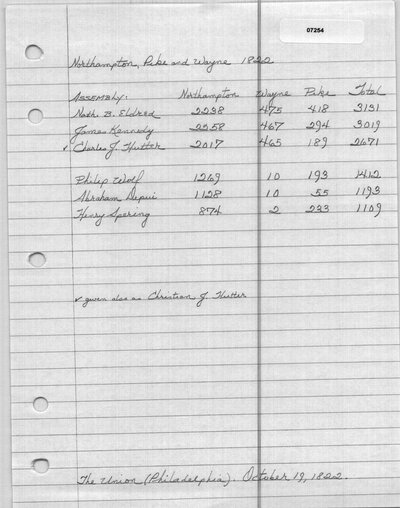 07254
Northampton, Pike and Wayne 1822
Assembly: Northampton Wayne Pike Total
Nath. B. Eldred 2238 475 418 3131
James Kennedy 2258 467 294 3019
✓ Charles J. Hutter 2017 465 189 2671
Philip Wolf 1269 10 193 1472
Abraham Depui 1128 10 55 1193
Henry Spering 874 2 233 1109
✓ given also as Christian J. Hutter
The Union (Philadelphia). October 19, 1822.